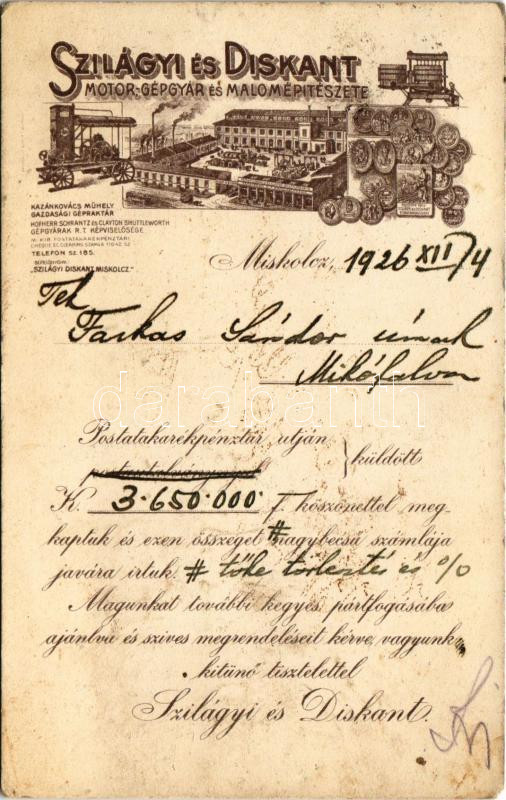 SZILÁGYI ÉS DISKANT
MOTOR-, GÉPGYÁR ÉS MALOMÉPITÉSZETE
KAZÁNKOVÁCS MŰHELY
GAZDASÁGI GÉPRAKTÁR
HOFHERR SCHRANTZ ÉS CLAYTON SHUTTLEWORTH
GÉPGYÁRAK R.T. KÉPVISELŐSÉGE
M. KIR. POSTATAKARÉKPÉNZTÁRI
TELEFON SZ. 185.
SÜRGÖNYCIM:
„SZILÁGYI DISKANT MISKOLCZ."
Miskolcz, 1926 XII/4
Tek
Farkas Sándor úrnak
Mikófalva
Postatakarékpénztár utján
küldött
K. 3.650.000 f. köszönettel meg-
kaptuk és ezen összeget # nagybecsű számlája
javára irtuk. # tőke törlesztés és %
Magunkat további kegyes pártfogásába
ajánlva és szives megrendeléseit kérve, vagyunk
kitünő tisztelettel
Szilágyi és Diskant.
darabanth